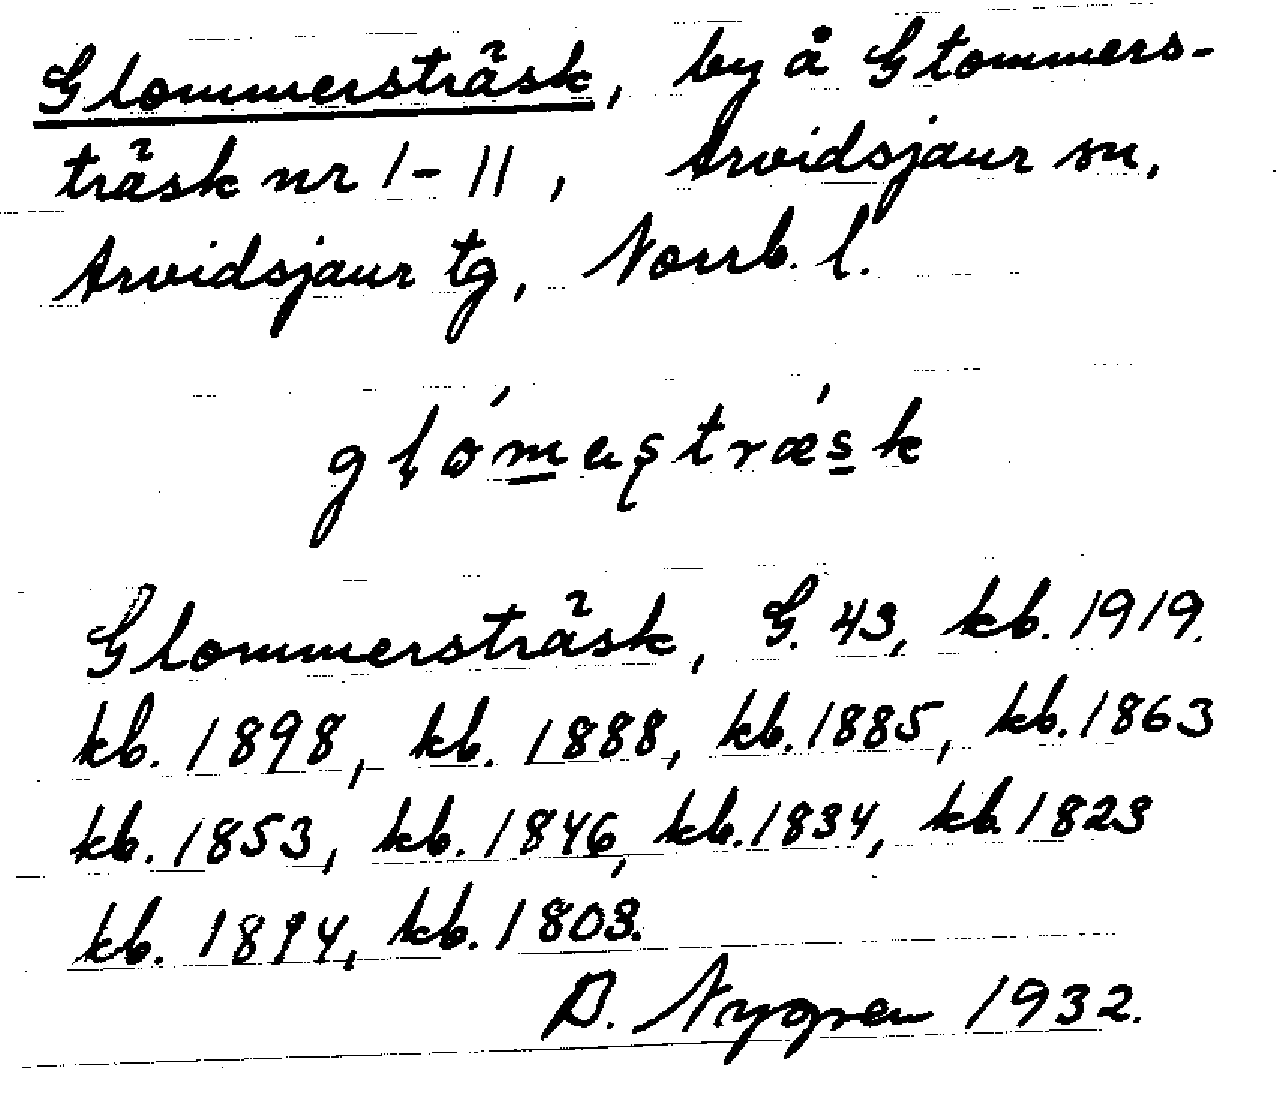 Glommersträsk, by å Glommers-
träsk nr 1-11, Arvidsjaur sn,
Arvidsjaur tg, Norrb. l.
glómaștrǽsk
Glommersträsk, G. 43, kb. 1919.
kb. 1898, kb. 1888, kb. 1885, kb. 1863
kb. 1853, kb. 1846, kb. 1834, kb. 1823
kb. 1814, kb. 1803.
D. Nygren 1932.